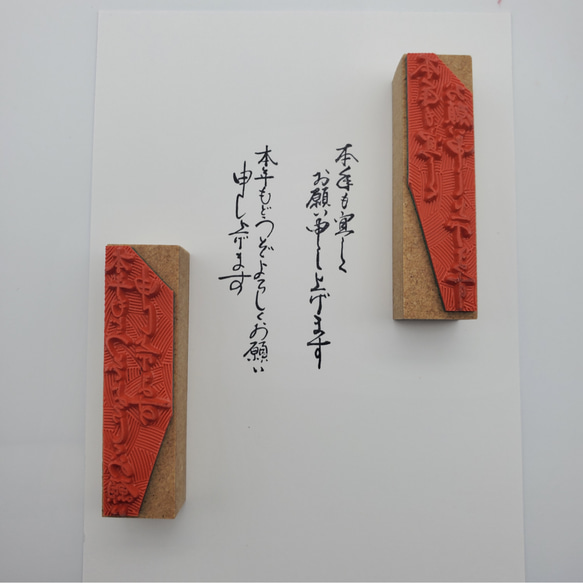 本年も宜しく
お願い申し上げます
本年もどうぞよろしくお願い
申し上げます